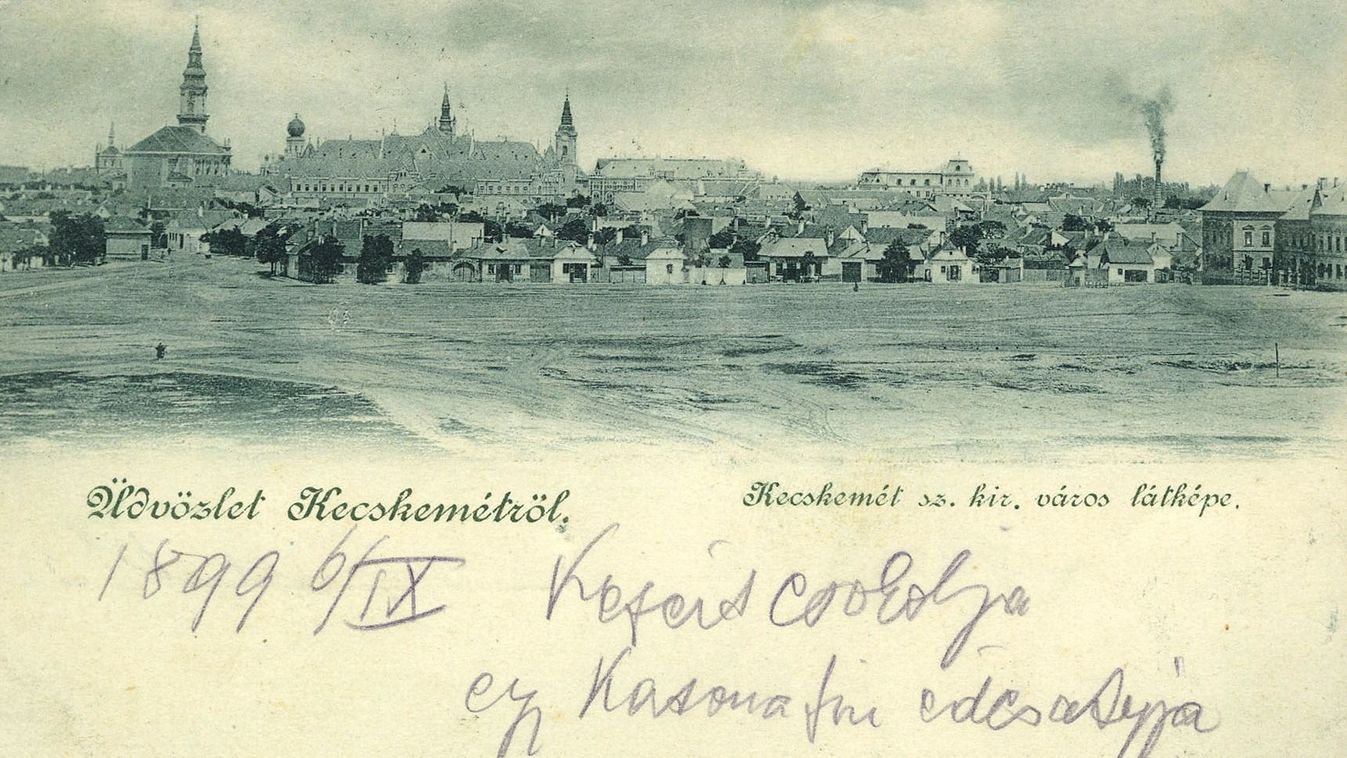 Üdvözlet Kecskemétröl.
Kecskemét sz. kir. város látképe.
1899 6/IX Kezeit csókolja
egy Katona fiu édesatyja